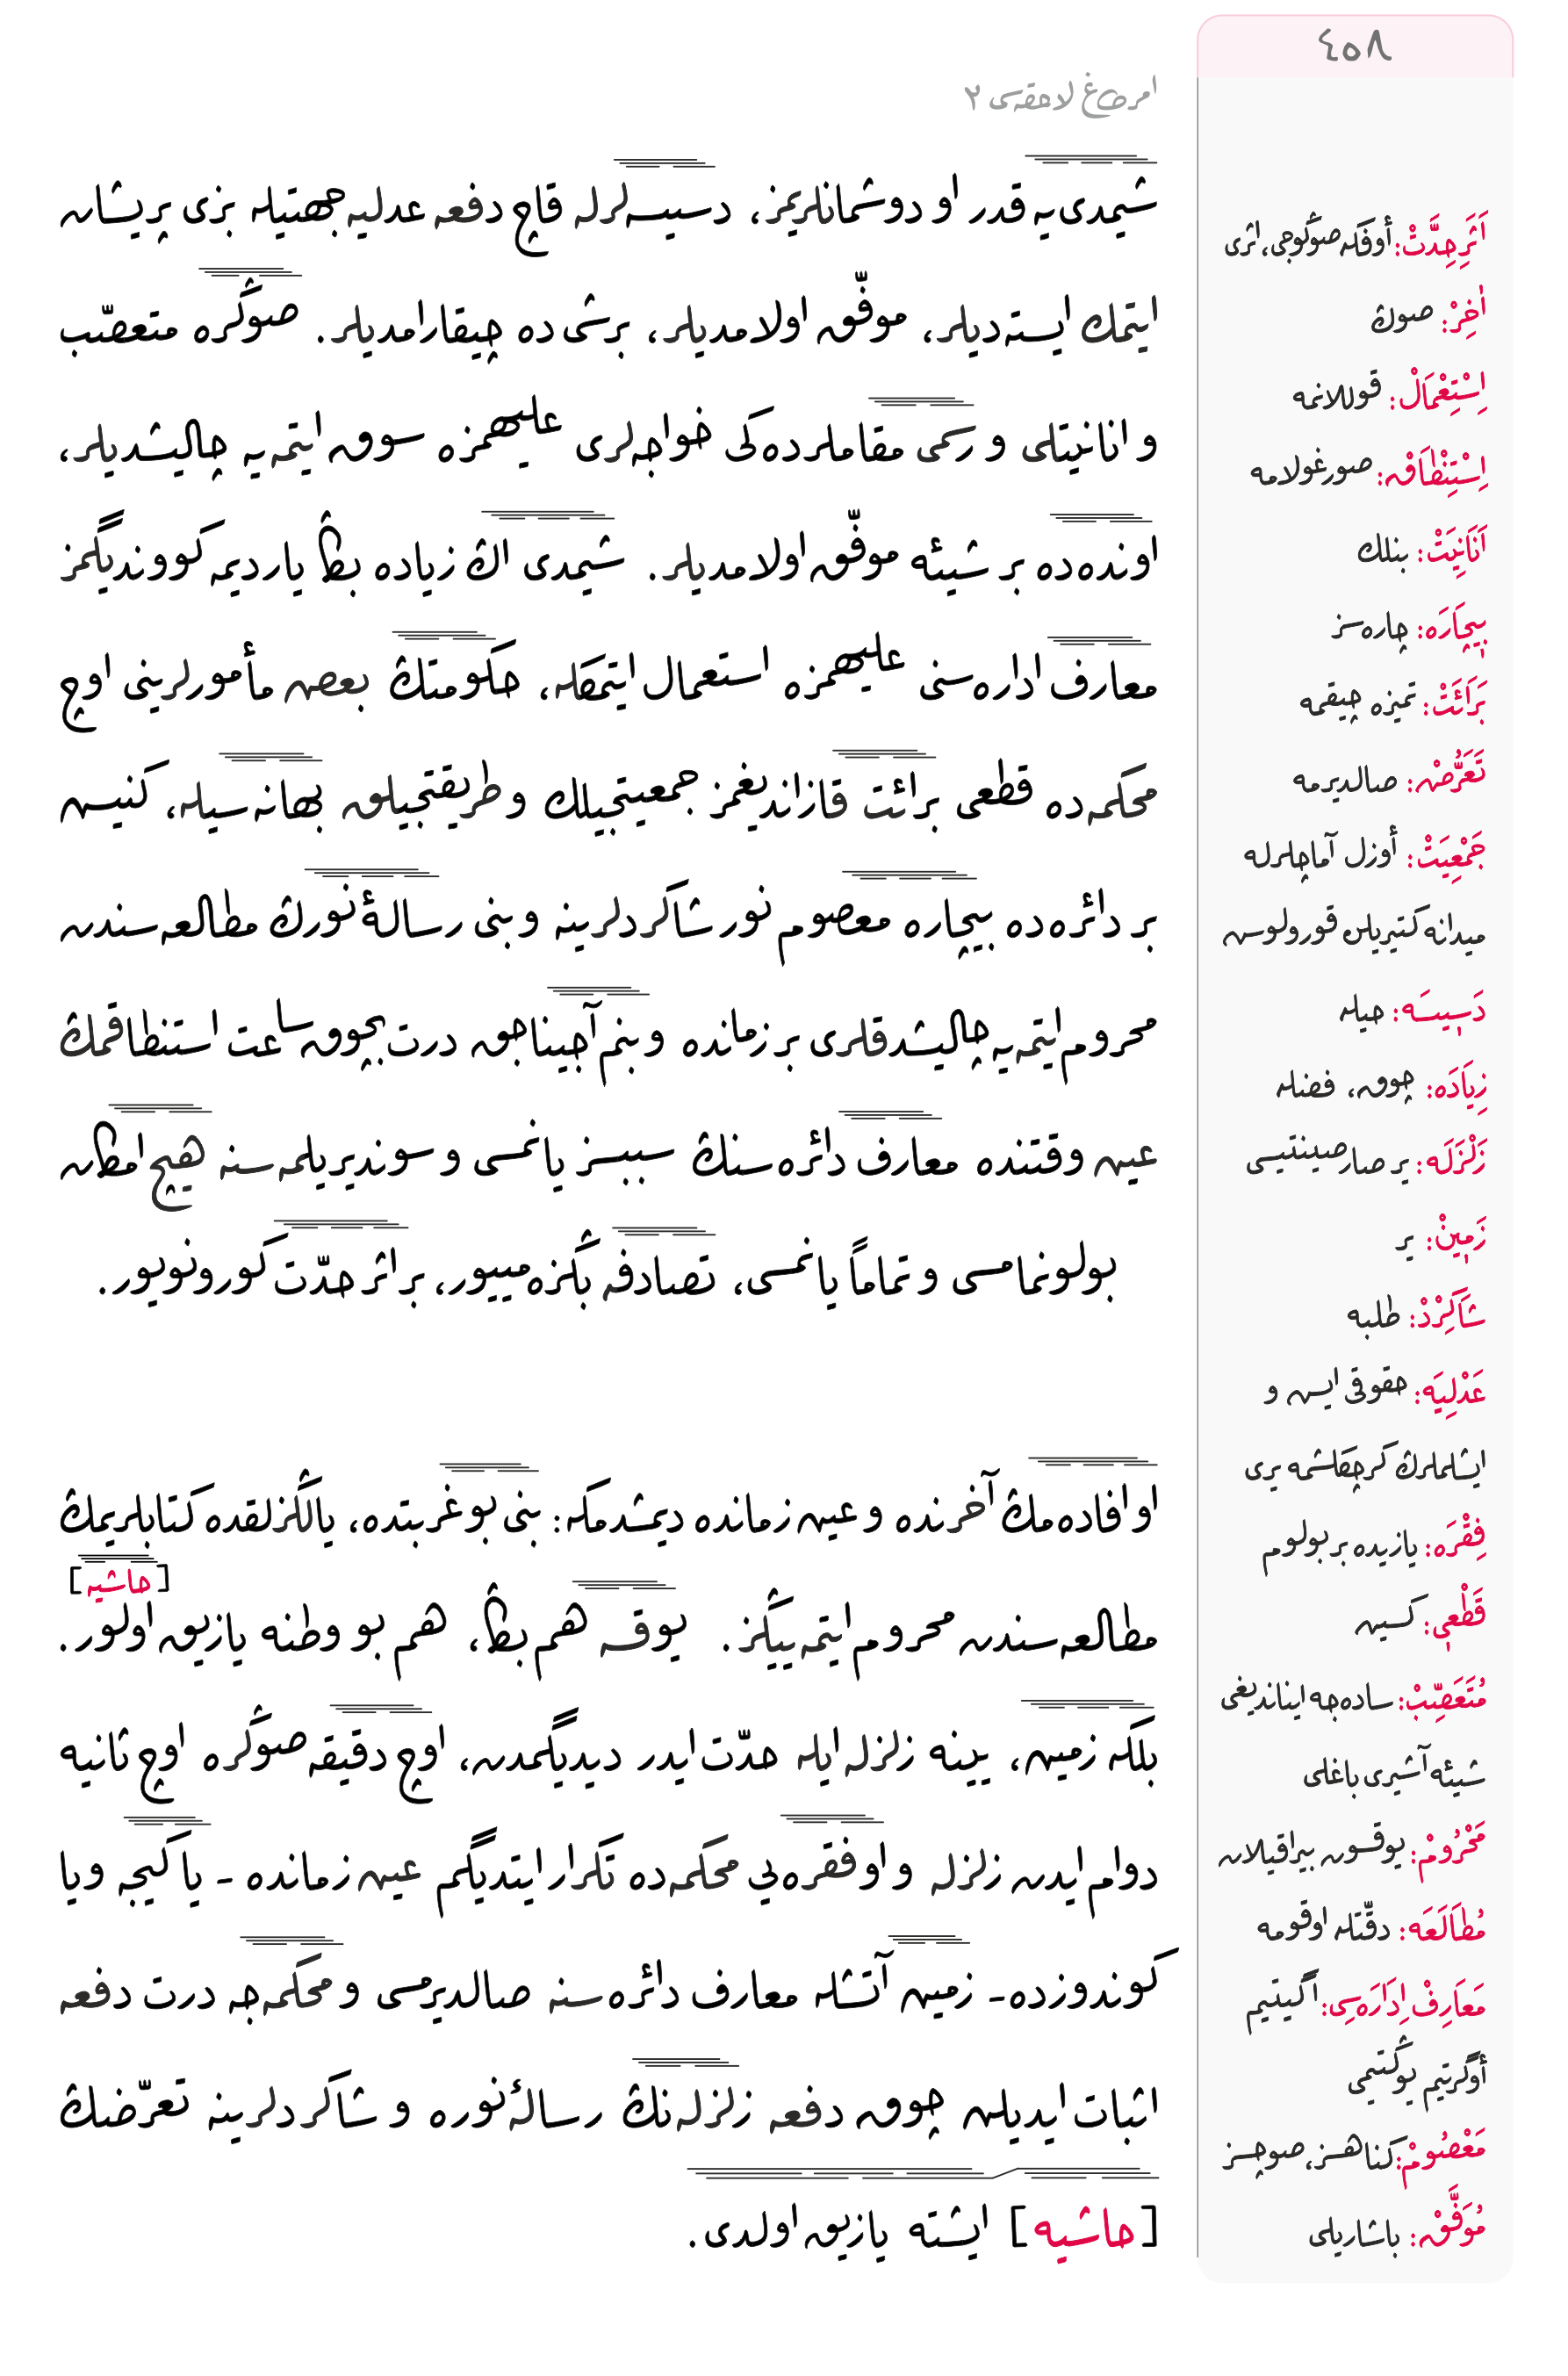 ٤٥٨
امرطاغ لاحقه‌سی ٢
شیمدی‌یه قدر او دوشمانلریمز، دسیسه‌لرله قاچ دفعه عدلیه جهتیله بزی پریشان
ایتمك ایسته‌دیلر، موفّق اولامدیلر، برشی ده چیقارامدیلر. صوڭره متعصّب
و انانیتلی و رسمی مقاملرده‌كی خواجه‌لری علیهمزه سوق ایتمه‌یه چالیشدیلر،
اونده‌ده بر شیئه موفّق اولامدیلر. شیمدی اڭ زیاده بڭا یاردیمه كووندیگمز
معارف اداره‌سنی علیهمزه استعمال ایتمكله، حكومتڭ بعض مأمورلرینی اوچ
محكمه‌ده قطعی برائت قازاندیغمز جمعیتجیلك و طریقتجیلق بهانه‌سیله، كنیش
بر دائره‌ده بیچاره معصوم نور شاكردلرینه و بنی رسالهٔ نورڭ مطالعه‌سندن
محروم ایتمه‌یه چالیشدقلری بر زمانده و بنم آجیناجق درت بچوق ساعت استنطاقمڭ
عین وقتنده معارف دائره‌سنڭ سببسز یانمسی و سوندیریلمه‌سنه هیچ امكان
بولونمامسی و تماماً یانمسی، تصادفه بڭزه‌مییور، بر اثر حدّت كورونویور.
او افاده‌مڭ آخرنده و عین زمانده دیمشدمكه: بنی بو غربتده، یالڭزلقده كتابلریمڭ
[حاشیه]
مطالعه‌سندن محروم ایتمه‌ییڭز. یوقسه هم بڭا، هم بو وطنه یازیق اولور.
بلكه زمین، یینه زلزله ایله حدّت ایدر دیدیگمدن، اوچ دقیقه صوڭره اوچ ثانیه
دوام ایدن زلزله و او فقره‌یی محكمه‌ده تكرار ایتدیگم عین زمانده - یا كیجه ویا
كوندوزده- زمین آتشله معارف دائره‌سنه صالدیرمسی و محكمه‌جه درت دفعه
اثبات ایدیلن چوق دفعه زلزله‌نڭ رسالهٔ نوره و شاكردلرینه تعرّضڭ
[حاشیه] ایشته یازیق اولدی.
اَثَرِ حِدَّتْ: أوفكه صوڭوجی، اثری
اٰخِرْ: صوڭ
اِسْتِعْمَالْ: قوللانمه
اِسْتِنْطَاقْ: صورغولامه
اَنَانِیَتْ: بنلك
بِیچَارَه: چاره‌سز
بَرَائَتْ: تمیزه چیقمه
تَعَرُّضْ: صالدیرمه
جَمْعِیَتْ: أوزل آماچلرله
میدانه كتیریلن قورولوش
دَسِیسَه: حیله
زِیَادَه: چوق، فضله
زَلْزَلَه: یر صارصینتیسی
زَمِینْ: یر
شَاكِرْدْ: طلبه
عَدْلِیَه: حقوقی ایش و
ایشلملرڭ كرچكلشمه یری
فِقْرَه: یازیده بر بولوم
قَطْعِی: كسین
مُتَعَصِّبْ: ساده‌جه ایناندیغی
شیئه آشیری باغلی
مَحْرُومْ: یوقسون بیراقیلان
مُطَالَعَه: دقّتله اوقومه
مَعَارِفْ اِدَارَه‌سِی: اگیتیم
أوگرتیم یوڭتیمی
مَعْصُومْ: كناهسز، صوچسز
مُوَفَّقْ: باشاریلی